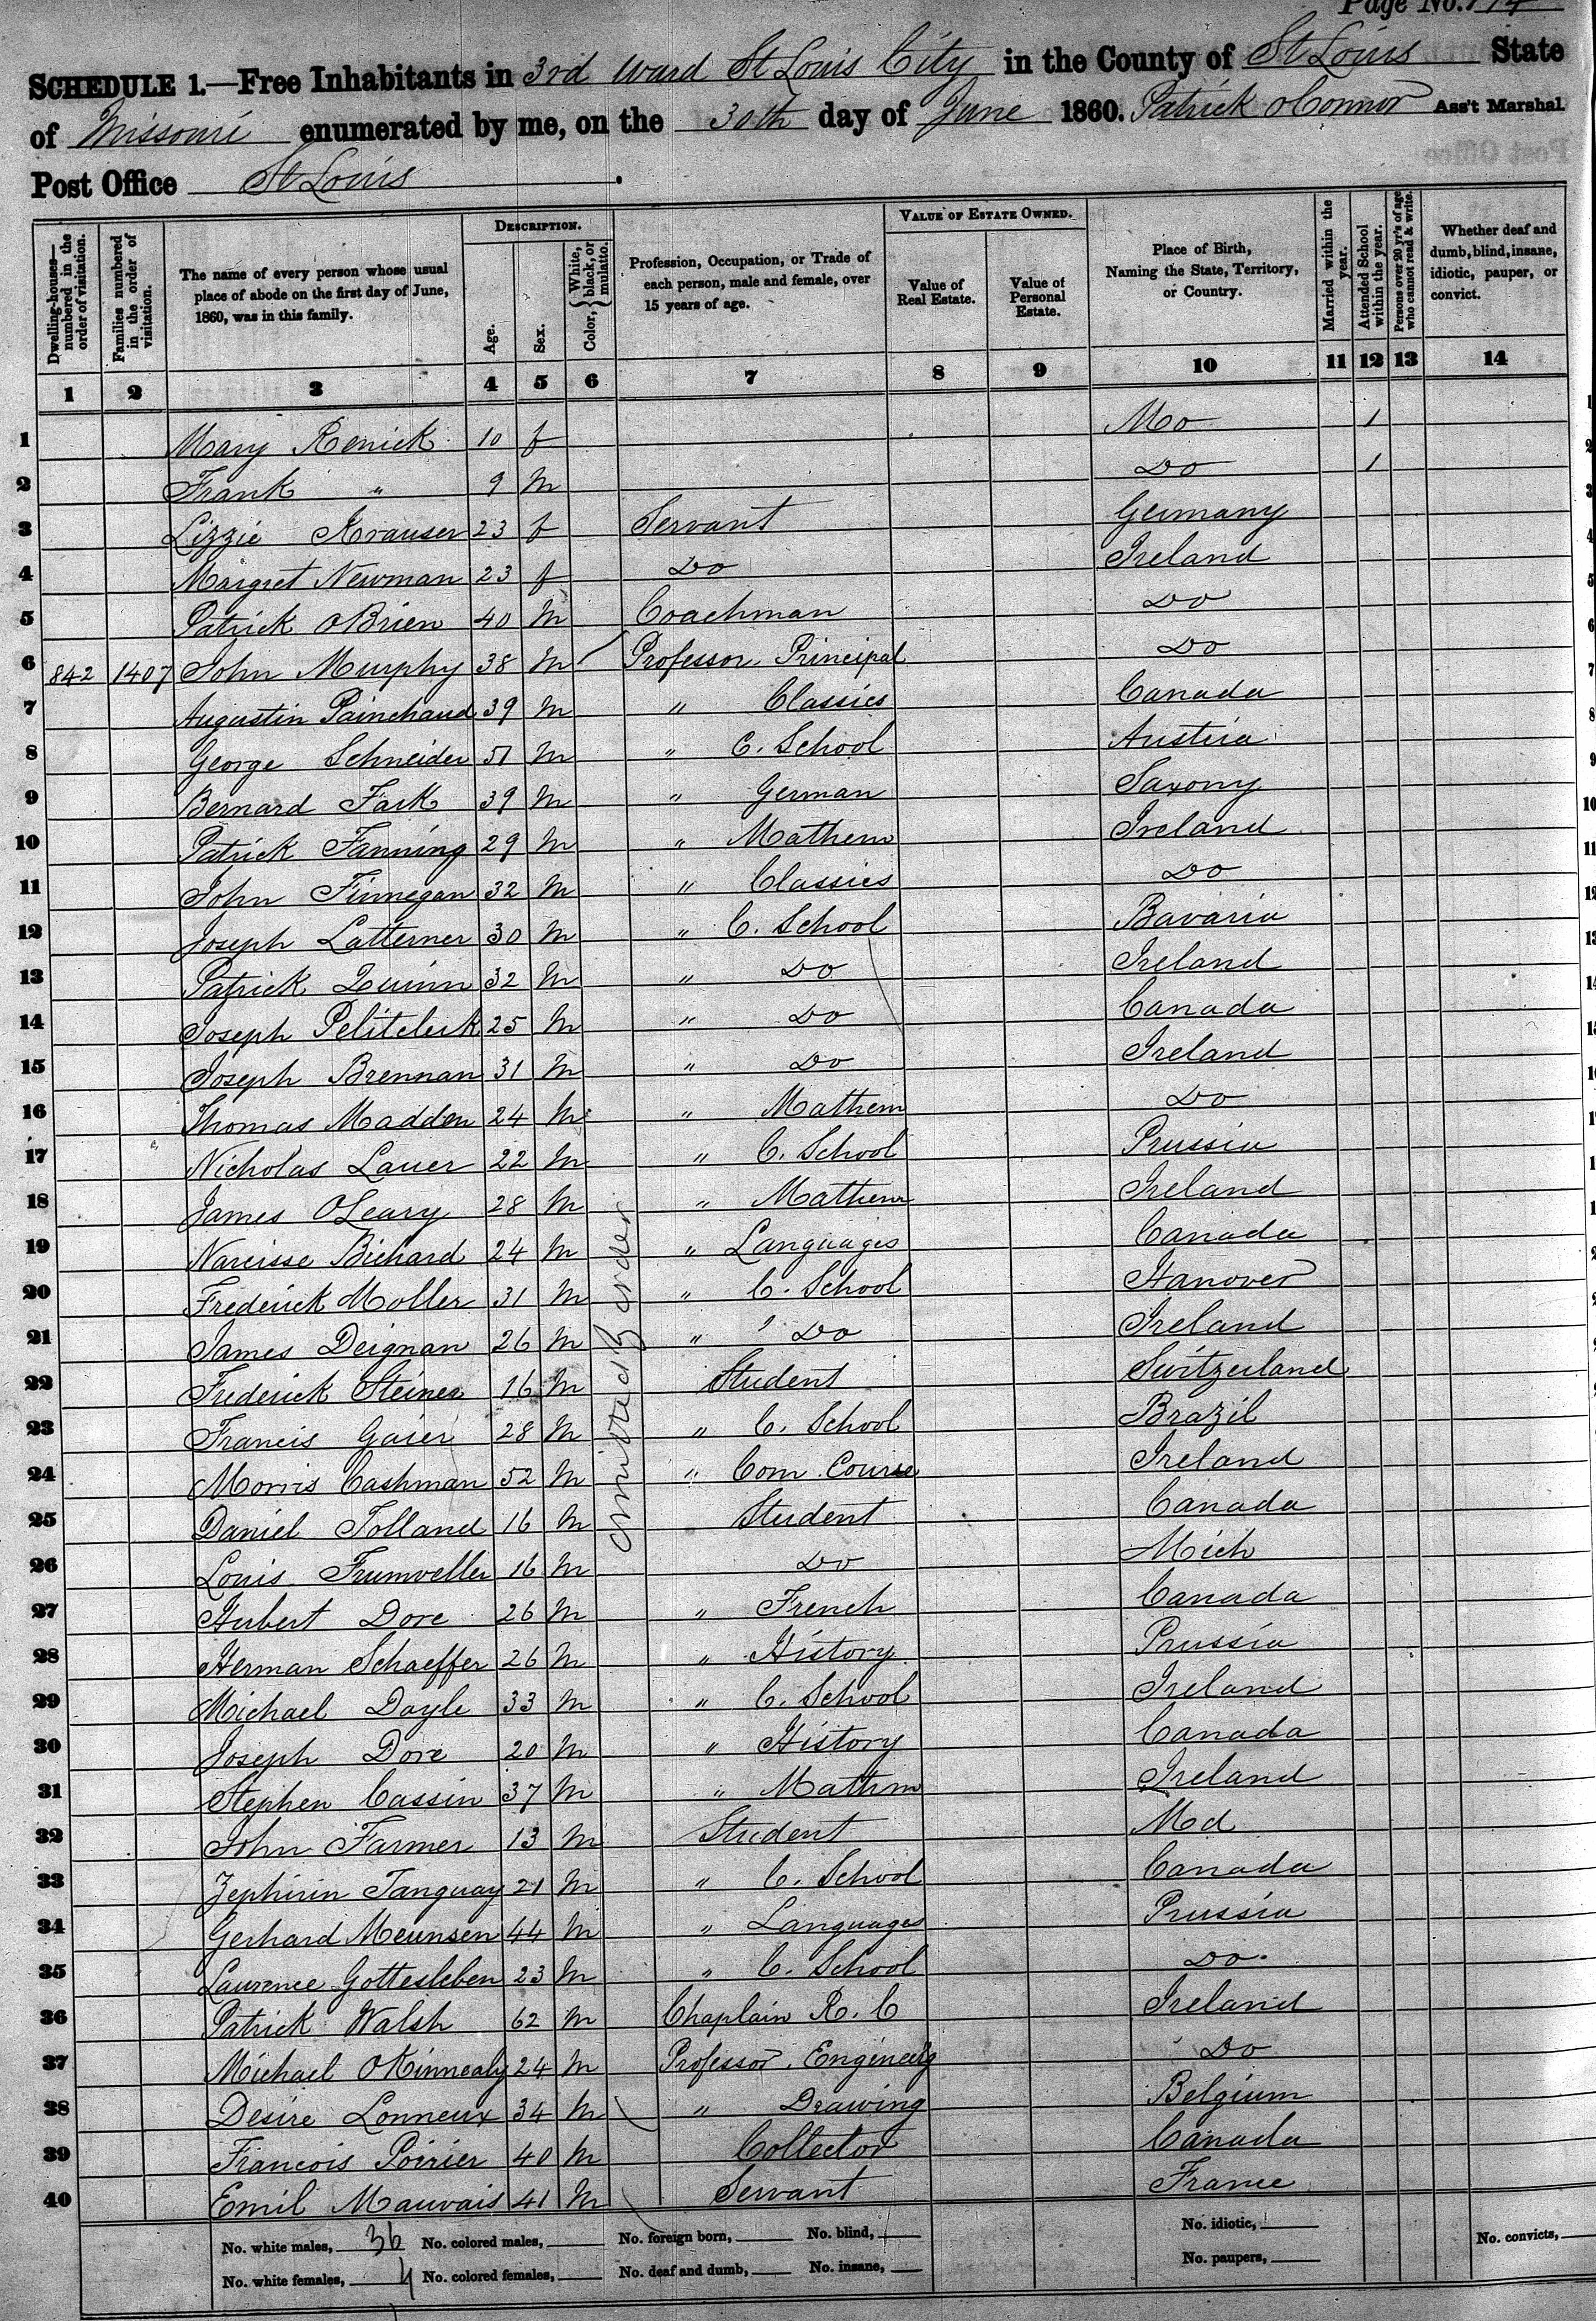 Page No. 114
SCHEDULE 1.—Free Inhabitants in 3rd Ward St Louis City in the County of St Louis State
of Missouri enumerated by me, on the 30th day of June 1860. Patrick OConnor Ass't Marshal.
Post Office St Louis.
Dwelling-houses—numbered in the order of visitation.
Families numbered in the order of visitation.
The name of every person whose usual place of abode on the first day of June, 1860, was in this family.
DESCRIPTION.
Age.
Sex.
Color, {White, black, or mulatto.
Profession, Occupation, or Trade of each person, male and female, over 15 years of age.
VALUE OF ESTATE OWNED.
Value of Real Estate.
Value of Personal Estate.
Place of Birth, Naming the State, Territory, or Country.
Married within the year.
Attended School within the year.
Persons over 20 yr's of age who cannot read & write.
Whether deaf and dumb, blind, insane, idiotic, pauper, or convict.
1 2 3 4 5 6 7 8 9 10 11 12 13 14
1 Mary Renick 10 f Mo 1
2 Frank " 9 m Do 1
3 Lizzie Krauser 23 f Servant Germany
4 Margret Newman 23 f Do Ireland
5 Patrick OBrien 40 m Coachman Do
6 842 1407 John Murphy 38 m Professor Principal Do
7 Augustin Painchaud 39 m " Classics Canada
8 George Schneider 51 m " C. School Austria
9 Bernard Fark 39 m " German Saxony
10 Patrick Fanning 29 m " Mathem Ireland
11 John Finnegan 32 m " Classics Do
12 Joseph Latterner 30 m " C. School Bavaria
13 Patrick Quinn 32 m " Do Ireland
14 Joseph Petitclerk 25 m " Do Canada
15 Joseph Brennan 31 m " Do Ireland
16 Thomas Madden 24 m " Mathem Do
17 Nicholas Lauer 22 m " C. School Prussia
18 James OLeary 28 m " Mathem Ireland
19 Narcisse Bichard 24 m " Languages Canada
20 Frederick Moller 31 m " C. School Hanover
21 James Deignan 26 m " Do Ireland
22 Frederick Steiner 16 m Student Switzerland
23 Francis Gaier 28 m " C. School Brazil
24 Morris Cashman 52 m " Com. Course Ireland
25 Daniel Tolland 16 m Student Canada
26 Louis Frumveller 16 m Do Mich
27 Hubert Dore 26 m " French Canada
28 Herman Schaeffer 26 m " History Prussia
29 Michael Doyle 33 m " C. School Ireland
30 Joseph Dore 20 m " History Canada
31 Stephen Cassin 37 m " Mathm Ireland
32 John Farmer 13 m Student Md
33 Zephirin Tanguay 21 m " C. School Canada
34 Gerhard Meunsen 44 m " Languages Prussia
35 Laurence Gottesleben 23 m " C. School Do
36 Patrick Walsh 62 m Chaplain R. C Ireland
37 Michael OKinnealy 24 m Professor. Engineerg Do
38 Desire Lonneux 34 m " Drawing Belgium
39 Francois Poirier 40 m Collector Canada
40 Emil Mauvais 41 m Servant France
No. white males, 36 No. colored males, No. foreign born, No. blind, No. idiotic, No. convicts,
No. white females, 4 No. colored females, No. deaf and dumb, No. insane, No. paupers,